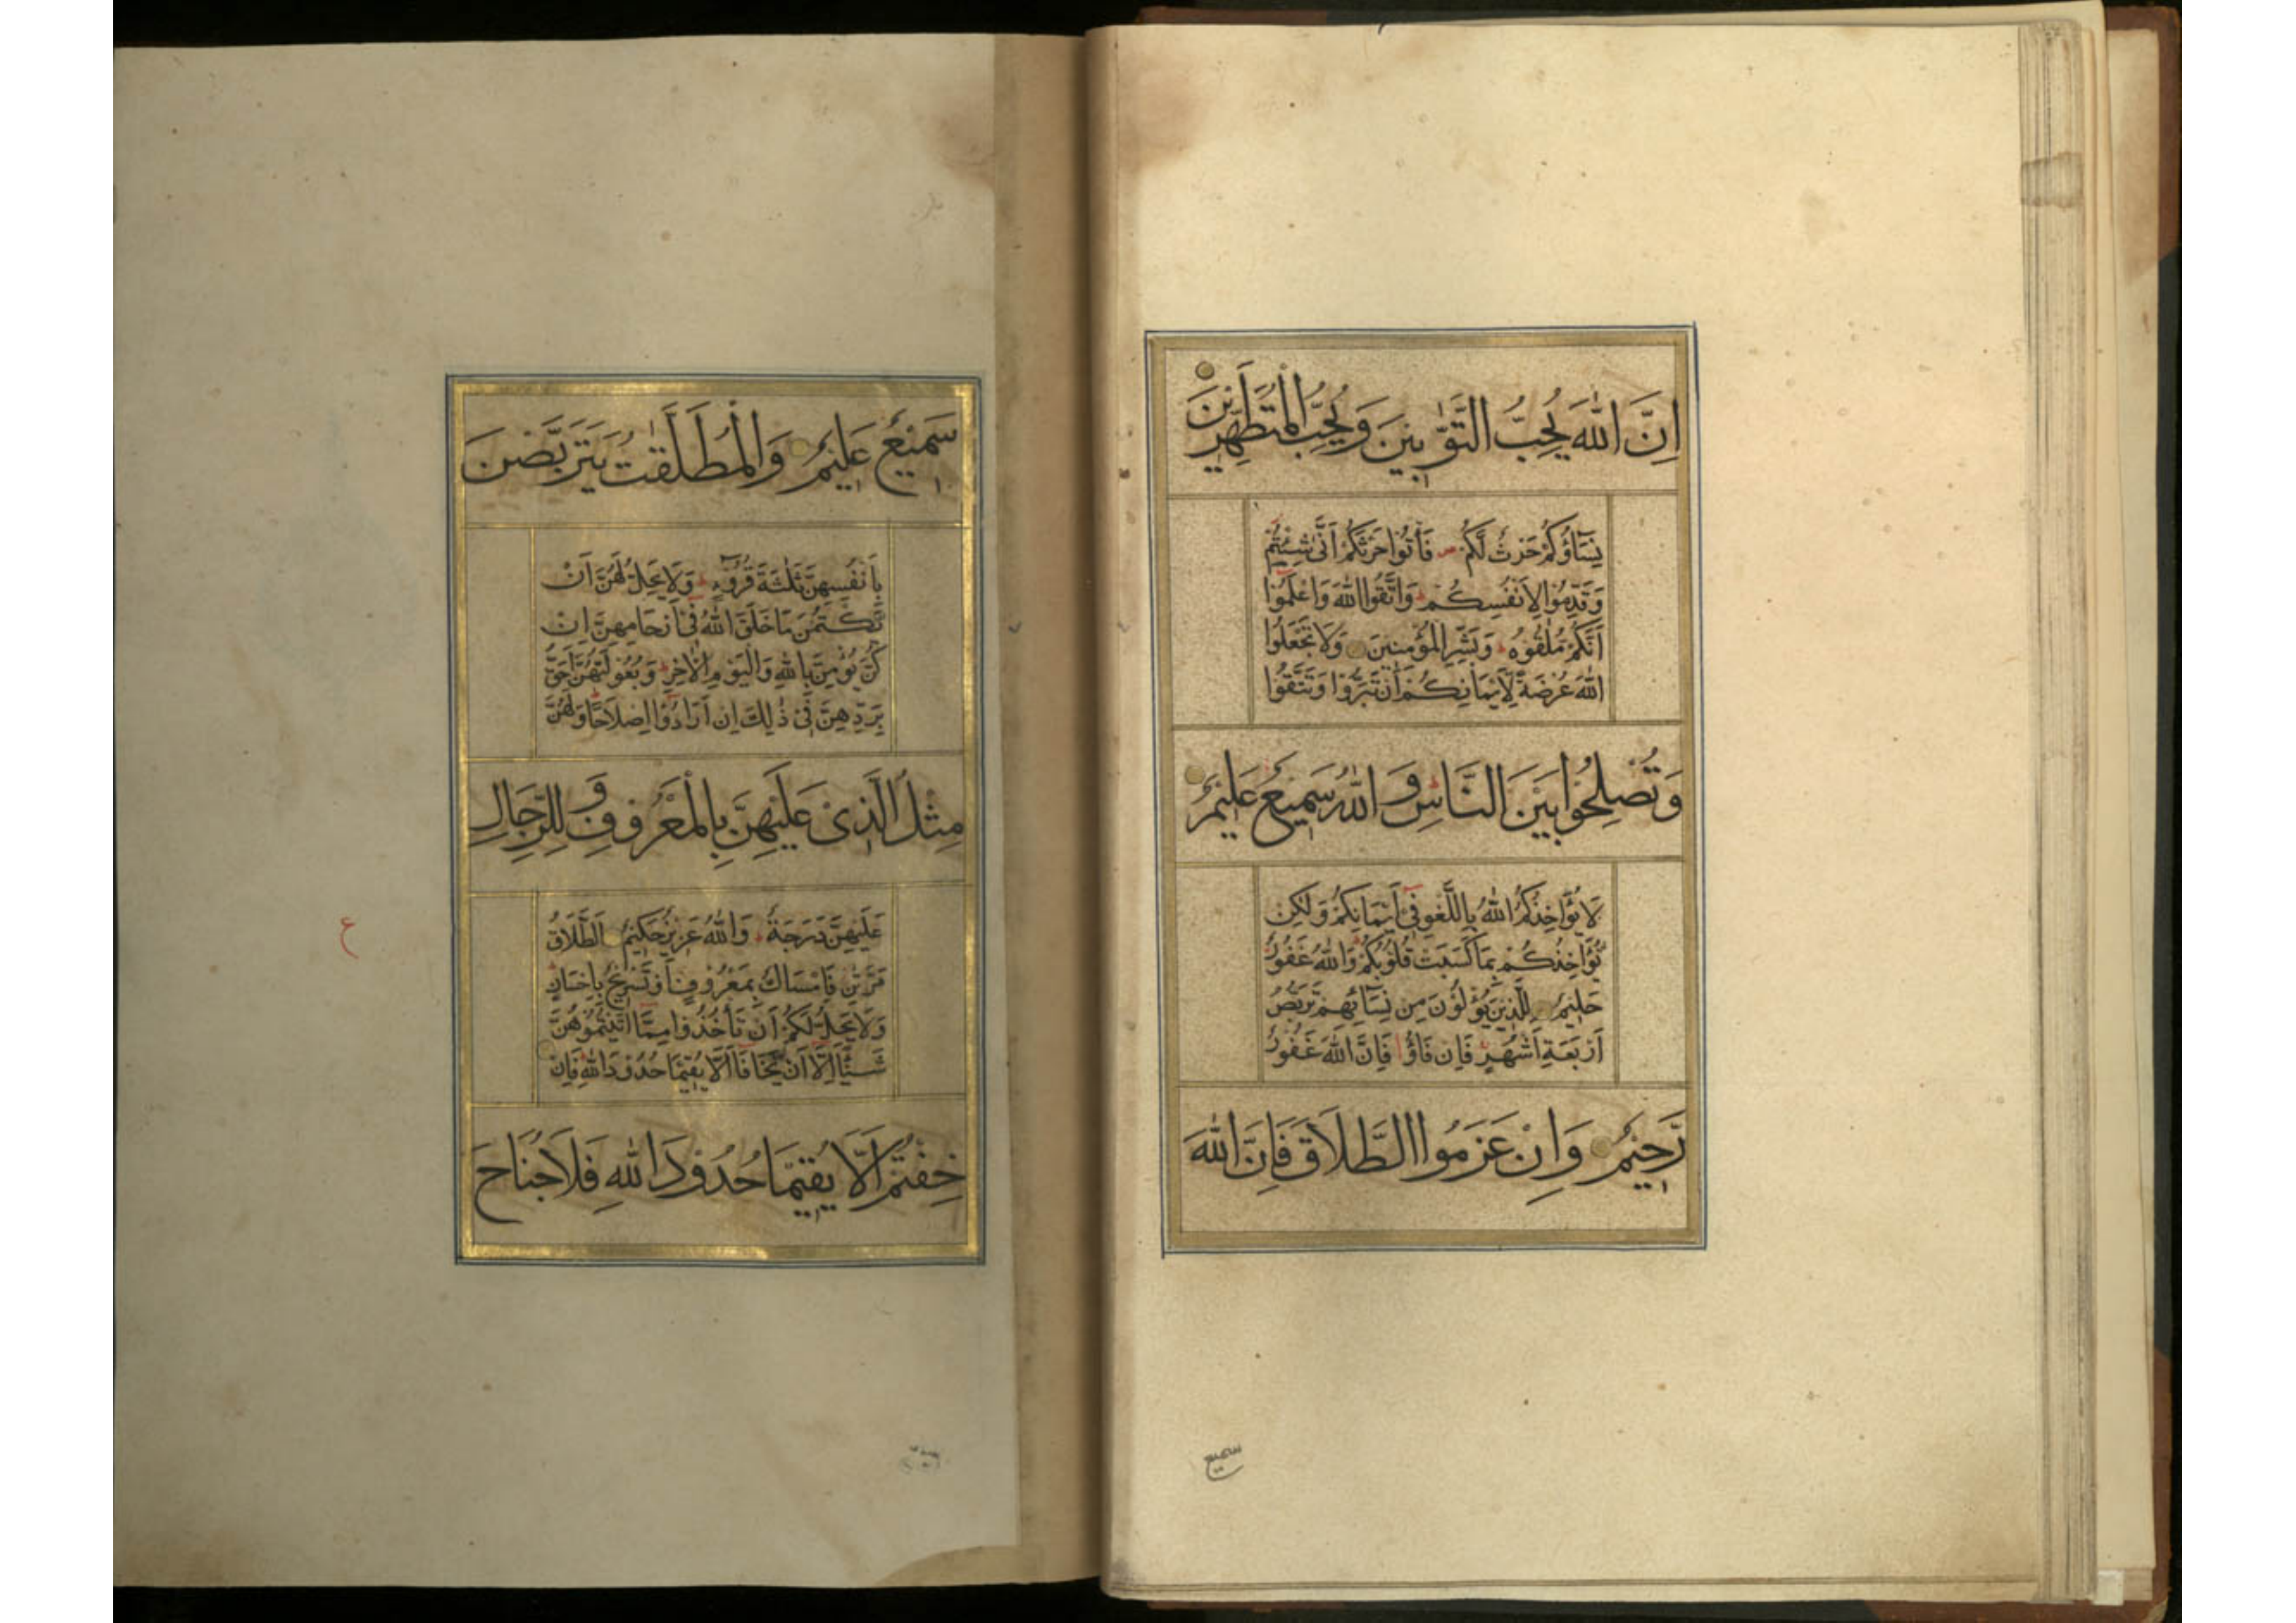 اِنَّ اللّٰهَ يُحِبُّ التَّوَّابِينَ وَيُحِبُّ الْمُتَطَهِّرِيْنَ
نِسَآؤُكُمْ حَرْثٌ لَّكُمْ ص فَأْتُوْا حَرْثَكُمْ اَنّٰى شِئْتُمْ
وَقَدِّمُوْا لِاَنْفُسِكُمْ ط وَاتَّقُوا اللّٰهَ وَاعْلَمُوْا
اَنَّكُمْ مُلٰقُوْهُ ط وَبَشِّرِ الْمُؤْمِنِيْنَ وَلَا تَجْعَلُوا
اللّٰهَ عُرْضَةً لِّاَيْمَانِكُمْ اَنْ تَبَرُّوْا وَتَتَّقُوْا
وَتُصْلِحُوْا بَيْنَ النَّاسِ ط وَاللّٰهُ سَمِيْعٌ عَلِيْمٌ
لَا يُؤَاخِذُكُمُ اللّٰهُ بِاللَّغْوِ فِيْ اَيْمَانِكُمْ وَلٰكِنْ
يُّؤَاخِذُكُمْ بِمَا كَسَبَتْ قُلُوْبُكُمْ ط وَاللّٰهُ غَفُوْرٌ
حَلِيْمٌ لِلَّذِيْنَ يُؤْلُوْنَ مِنْ نِسَآئِهِمْ تَرَبُّصُ
اَرْبَعَةِ اَشْهُرٍ ج فَاِنْ فَآؤُا فَاِنَّ اللّٰهَ غَفُوْرٌ
رَّحِيْمٌ وَاِنْ عَزَمُوا الطَّلَاقَ فَاِنَّ اللّٰهَ
سميع
سَمِيْعٌ عَلِيْمٌ وَالْمُطَلَّقٰتُ يَتَرَبَّصْنَ
بِاَنْفُسِهِنَّ ثَلٰثَةَ قُرُوْٓءٍ ط وَلَا يَحِلُّ لَهُنَّ اَنْ
يَّكْتُمْنَ مَا خَلَقَ اللّٰهُ فِيْ اَرْحَامِهِنَّ اِنْ
كُنَّ يُؤْمِنَّ بِاللّٰهِ وَالْيَوْمِ الْاٰخِرِ ط وَبُعُوْلَتُهُنَّ اَحَقُّ
بِرَدِّهِنَّ فِيْ ذٰلِكَ اِنْ اَرَادُوْا اِصْلَاحًا ط وَلَهُنَّ
مِثْلُ الَّذِيْ عَلَيْهِنَّ بِالْمَعْرُوْفِ وَلِلرِّجَالِ
عَلَيْهِنَّ دَرَجَةٌ ط وَاللّٰهُ عَزِيْزٌ حَكِيْمٌ اَلطَّلَاقُ
مَرَّتٰنِ فَاِمْسَاكٌ بِمَعْرُوْفٍ اَوْ تَسْرِيْحٌ بِاِحْسَانٍ ط
وَلَا يَحِلُّ لَكُمْ اَنْ تَأْخُذُوْا مِمَّا اٰتَيْتُمُوْهُنَّ
شَيْئًا اِلَّا اَنْ يَّخَافَا اَلَّا يُقِيْمَا حُدُوْدَ اللّٰهِ ط فَاِنْ
خِفْتُمْ اَلَّا يُقِيْمَا حُدُوْدَ اللّٰهِ فَلَا جُنَاحَ
ع